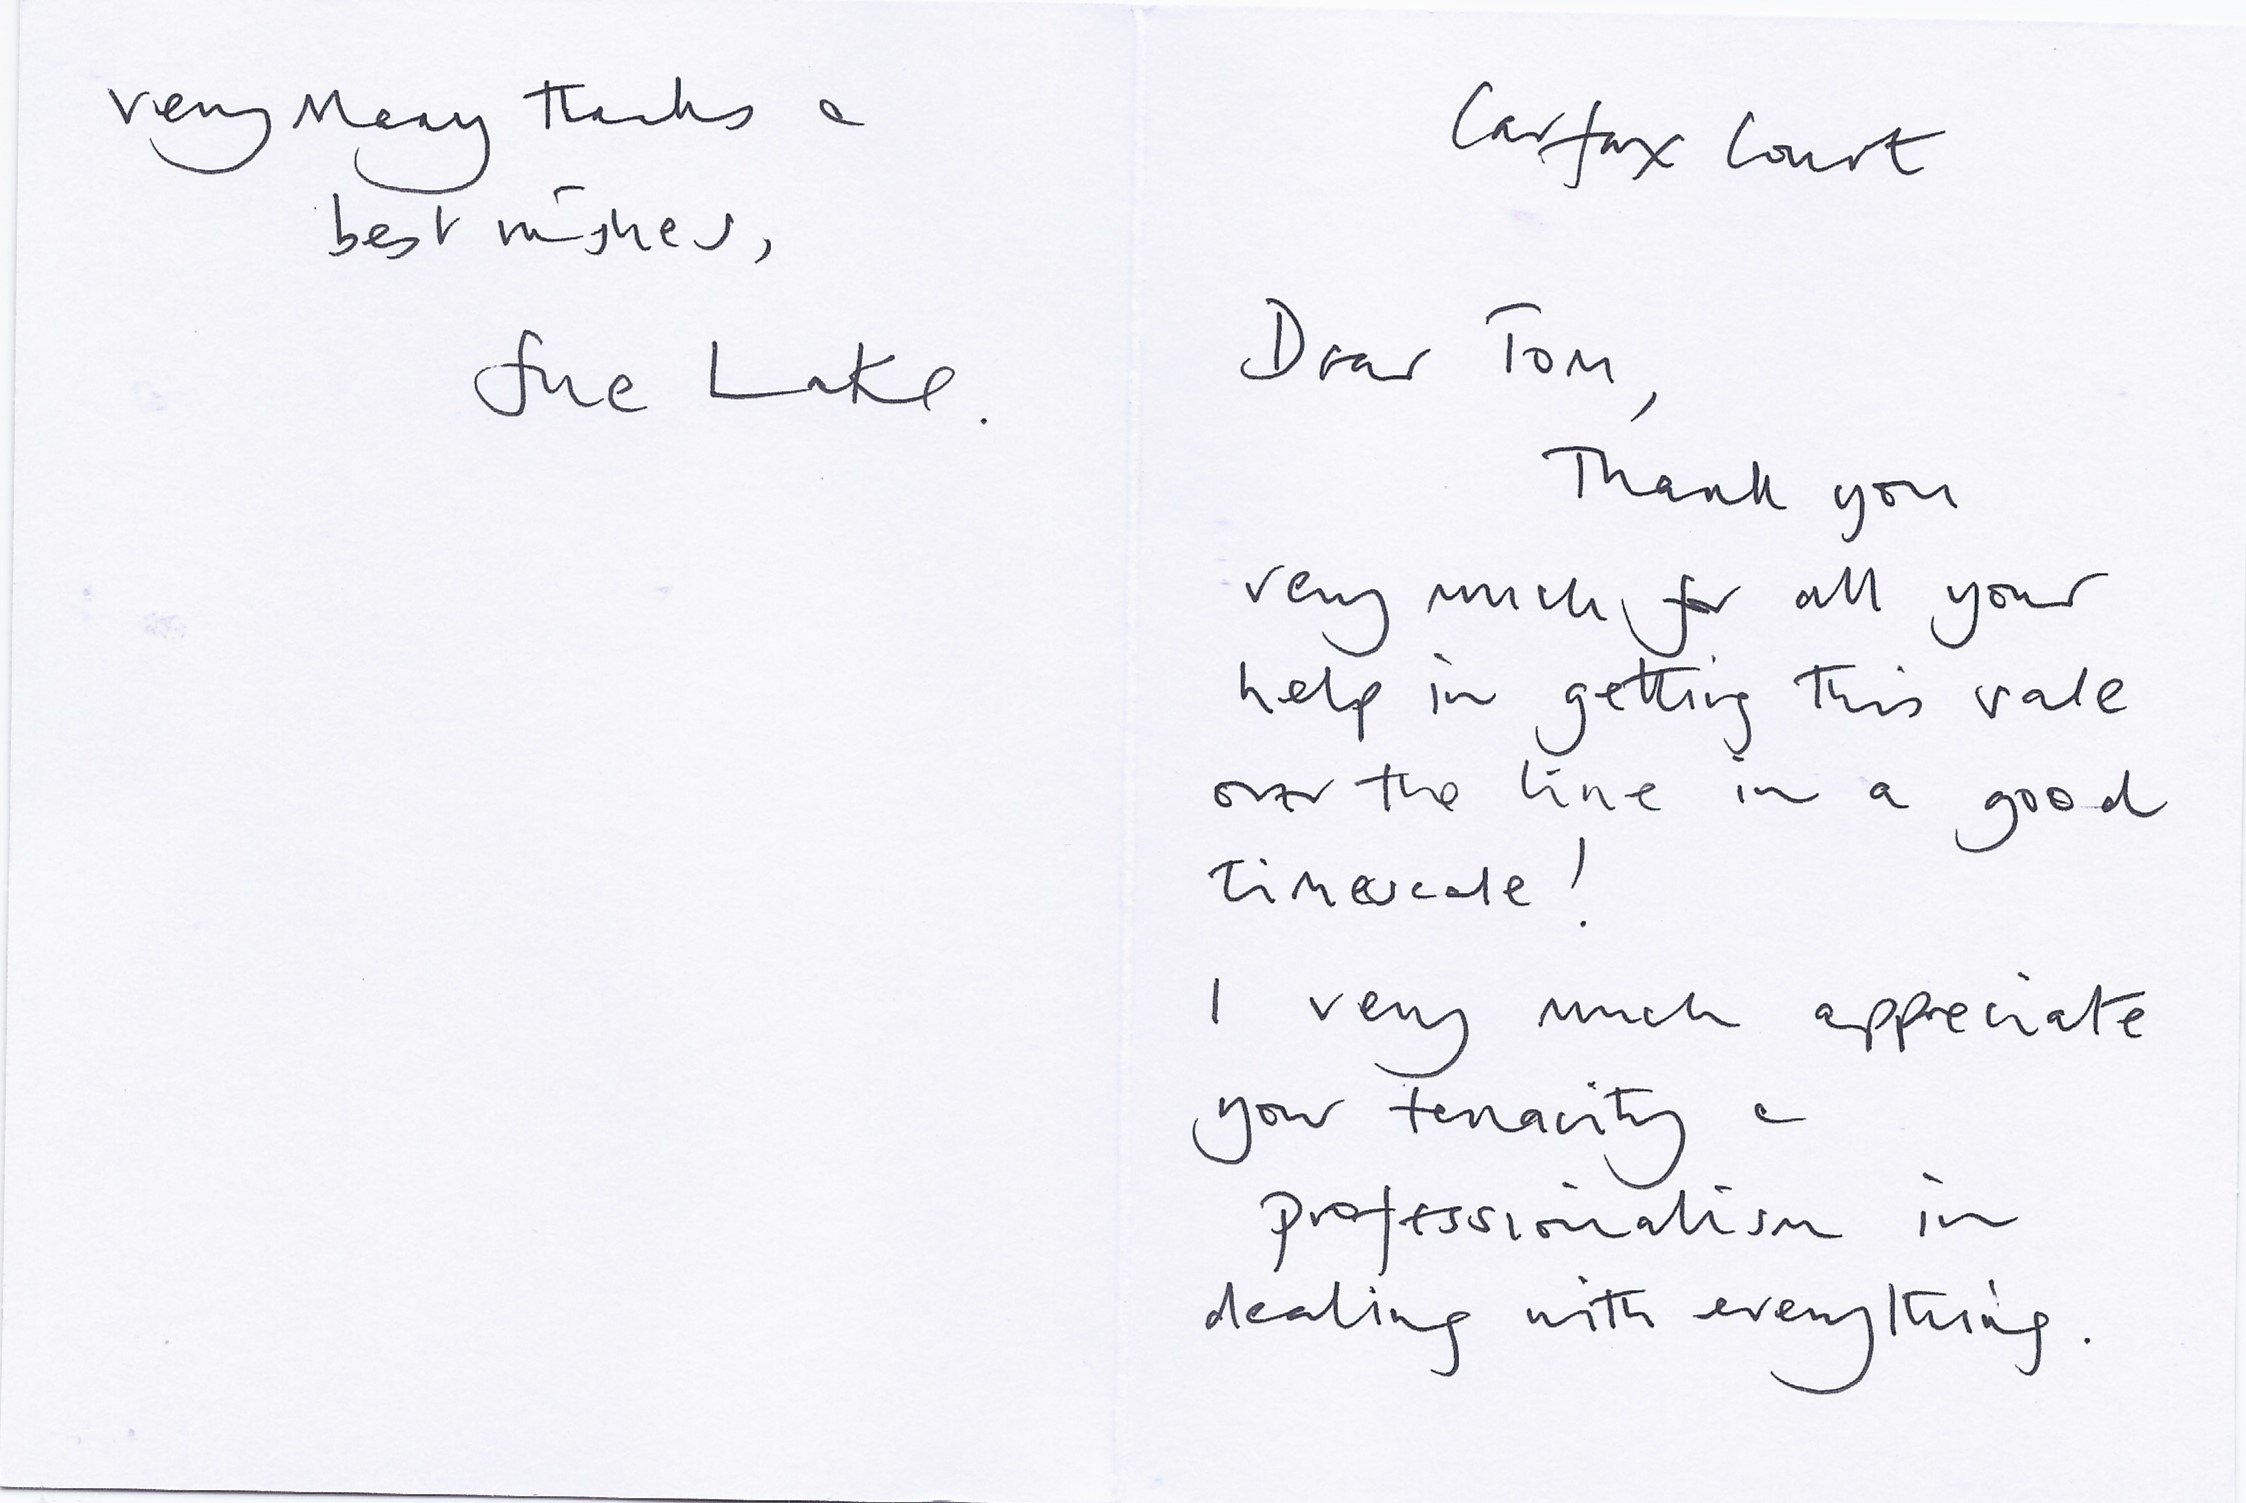 Carfax Court
Dear Tom,
Thank you
very much for all your
help in getting this sale
over the line in a good
timescale!
I very much appreciate
your tenacity &
professionalism in
dealing with everything.
Very Many thanks &
best wishes,
Sue Lake.